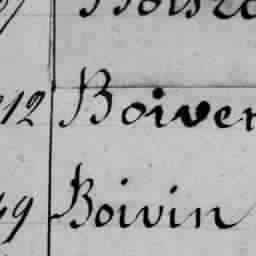 12 Boiver
49 Boivin